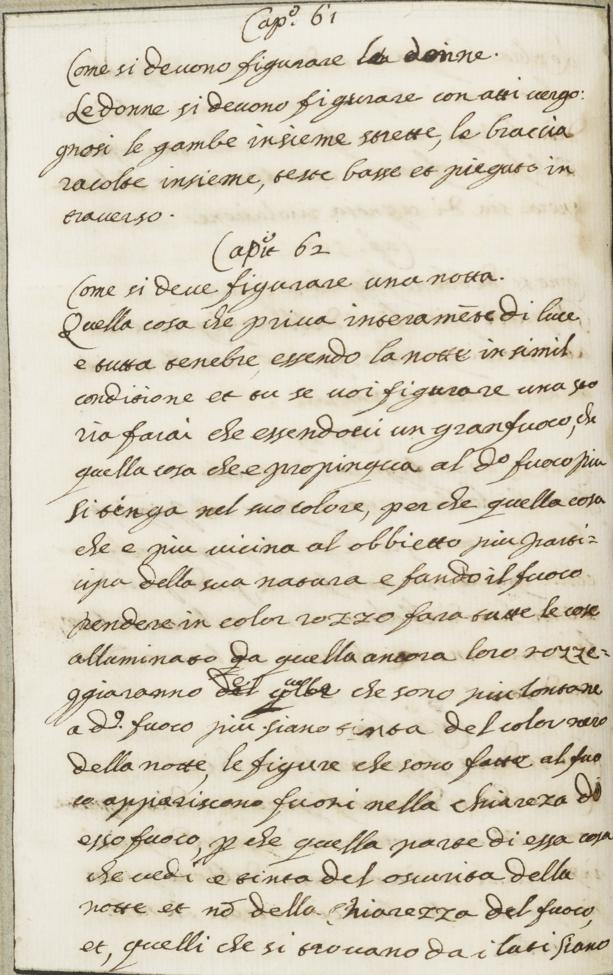 Cap.º 61
Come si devono figurare le donne.
Le donne si devono figurare con atti vergo:
gnosi le gambe insieme strette, le braccia
racolte insieme, teste basse et piegate in
traverso.
Capit 62
Come si deve figurare una notte.
Quella cosa che priva interamēte di luce
e tutta tenebre, essendo la notte in simil
conditione et tu se voi figurare una sto
ria farai che essendoci un gran fuoco, che
quella cosa che e propinqua al dº fuoco piu
si tinga nel suo colore, per che quella cosa
che e piu vicina al obbietto piu parti=
cipa della sua natura e fando il fuoco
pendere in color rozzo fara tutte le cose
alluminate da quella ancora loro rozze=
ggiaranno et quelle che sono piu lontane
a dº. fuoco piu siano tinta del color nero
della notte, le figure che sono fatte al fuo
co appariscono fuori nella chiareza di
esso fuoco, p che quella parte di essa cosa
che vedi e tinta del oscurita della
notte et nō della chiarezza del fuoco,
et, quelli che si trovano da i lati siano